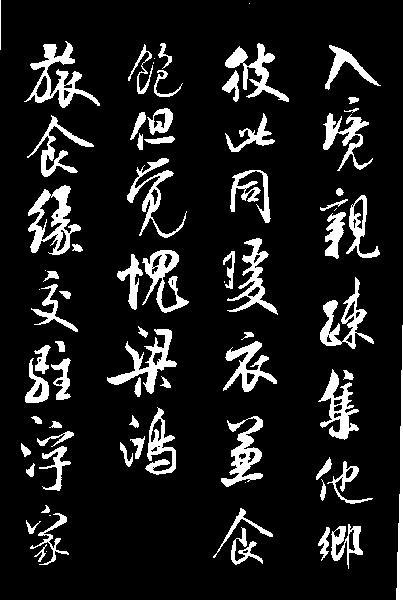 入境親疎集他鄉
彼此同暖衣兼食
飽但觉愧梁鴻
旅食緣交駐浮家